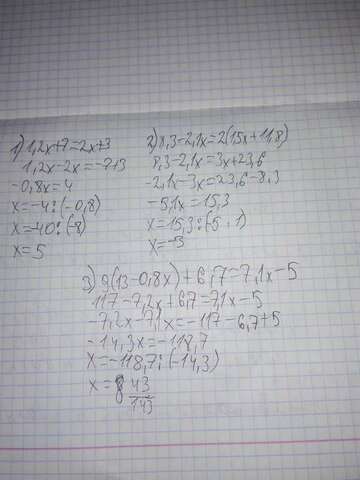 1) 1,2x+7=2x+3
1,2x-2x=-7+3
-0,8x=4
x=-4:(-0,8)
x=-40:(-8)
x=5
2) 8,3-2,1x=2(1,5x+11,8)
8,3-2,1x=3x+23,6
-2,1x-3x=23,6-8,3
-5,1x=15,3
x=15,3:(-5,1)
x=-3
3) 9(13-0,8x)+6,7=7,1x-5
117-7,2x+6,7=7,1x-5
-7,2x-7,1x=-117-6,7+5
-14,3x=-118,7
x=-118,7:(-14,3)
x=8 43/143